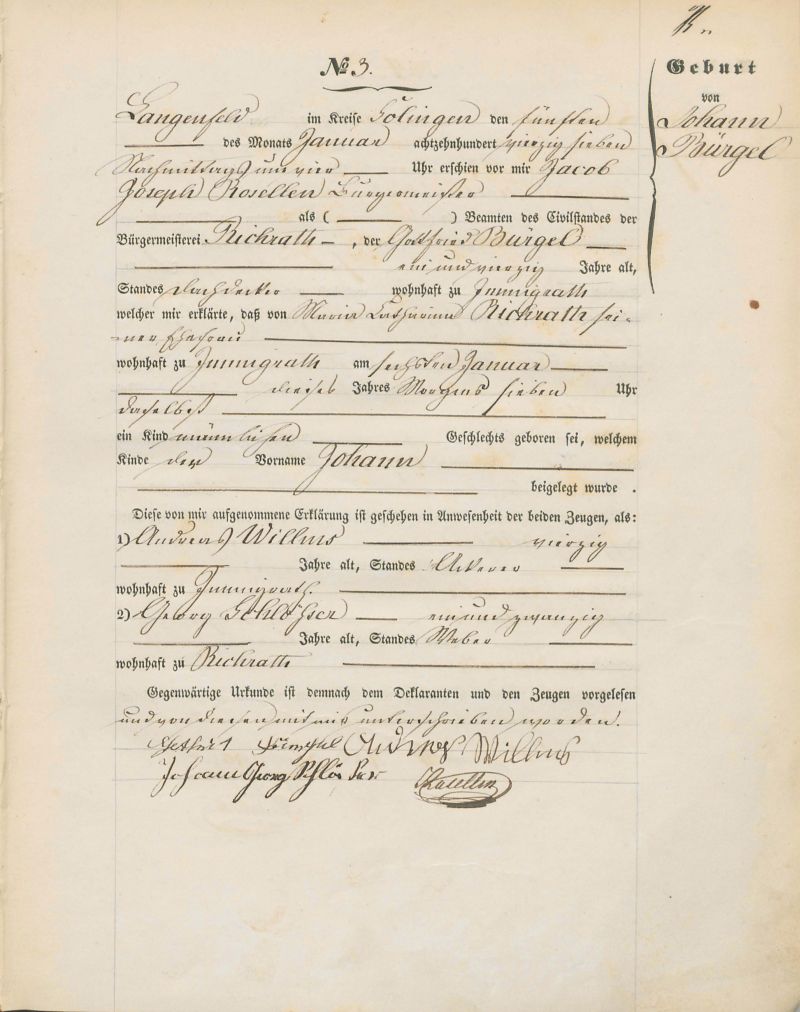 № 3.
Geburt
von
Johann
Bürgel
Langenfeld im Kreise Solingen den fünften
des Monats Januar achtzehnhundert vierzig sieben
Nachmittags um vier Uhr erschien vor mir Jacob
Joseph Rosellen Bürgermeister
als ( ) Beamten des Civilstandes der
Bürgermeisterei Richrath, der Gottfried Bürgel
ein und vierzig Jahre alt,
Standes Dachdecker wohnhaft zu Immigrath
welcher mir erklärte, daß von Maria Catharina Richrath sei-
ner Ehefrau
wohnhaft zu Immigrath am sechsten Januar
dieses Jahres Morgens sieben Uhr
daselbst
ein Kind männlichen Geschlechts geboren sei, welchem
Kinde der Vorname Johann
beigelegt wurde .
Diese von mir aufgenommene Erklärung ist geschehen in Anwesenheit der beiden Zeugen, als:
1) Andreas Willms vierzig
Jahre alt, Standes Ackerer
wohnhaft zu Immigrath.
2) Georg Schlösser ein und zwanzig
Jahre alt, Standes Weber
wohnhaft zu Richrath
Gegenwärtige Urkunde ist demnach dem Deklaranten und den Zeugen vorgelesen
und von diesen mit mir unterschrieben worden.
Andreas Willms
Johann Georg Schlösser Rosellen